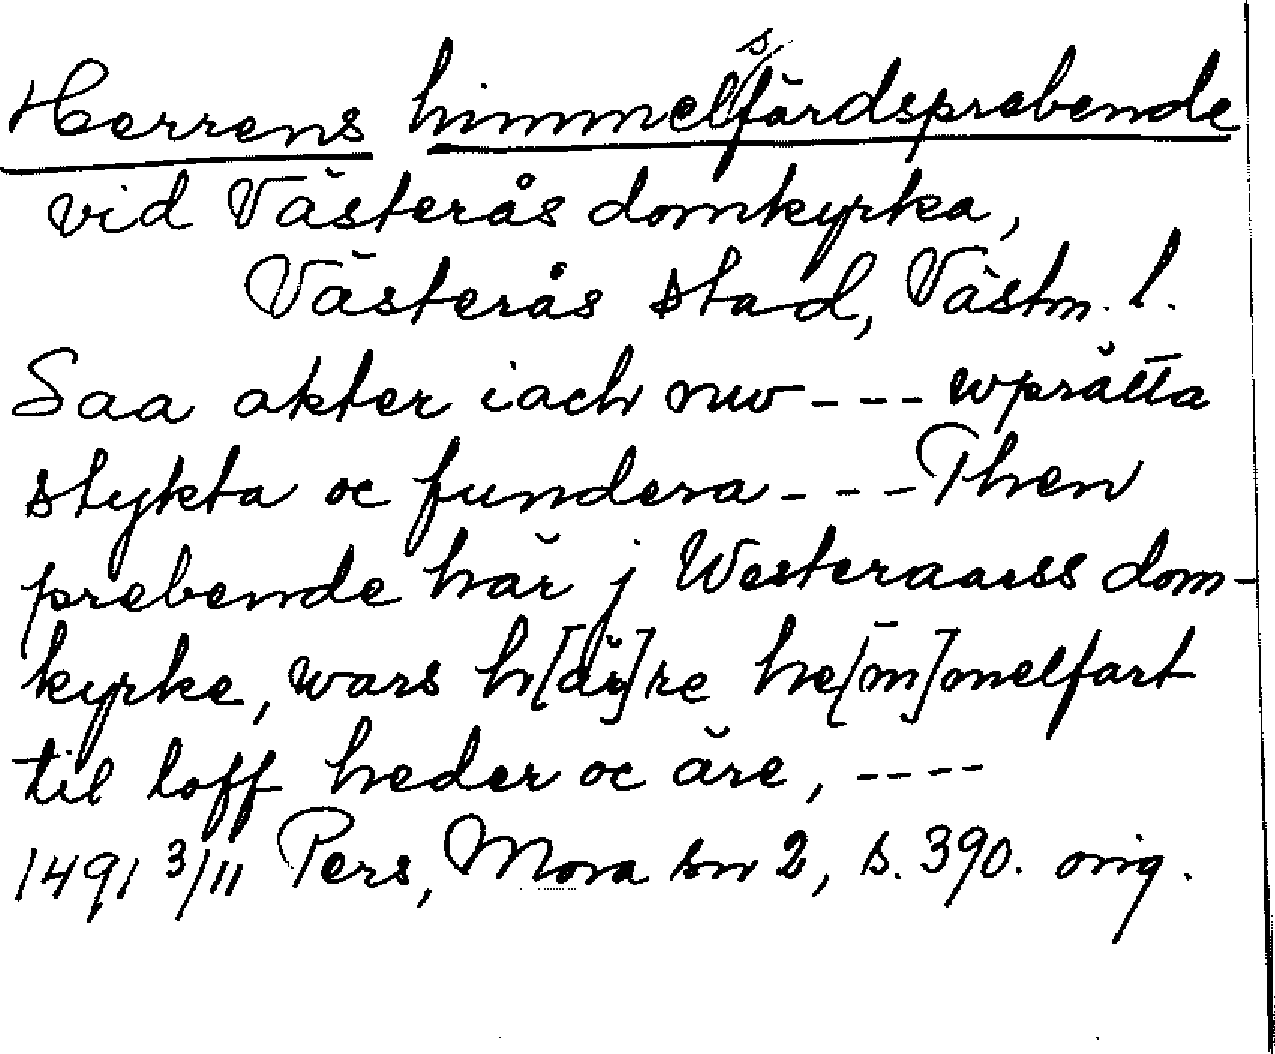 Herrens himmelsfärdsprebende
vid Västerås domkyrka,
Västerås stad, Västm. l.
Saa akter iach nw --- wprätta
stykta oc fundera --- Then
prebende här j Westeraarss dom-
kyrke, wars h[är]re he[m]melfart
til loff heder oc äre, ----
1491 3/11 Pers, Mora sn 2, s. 390. orig.